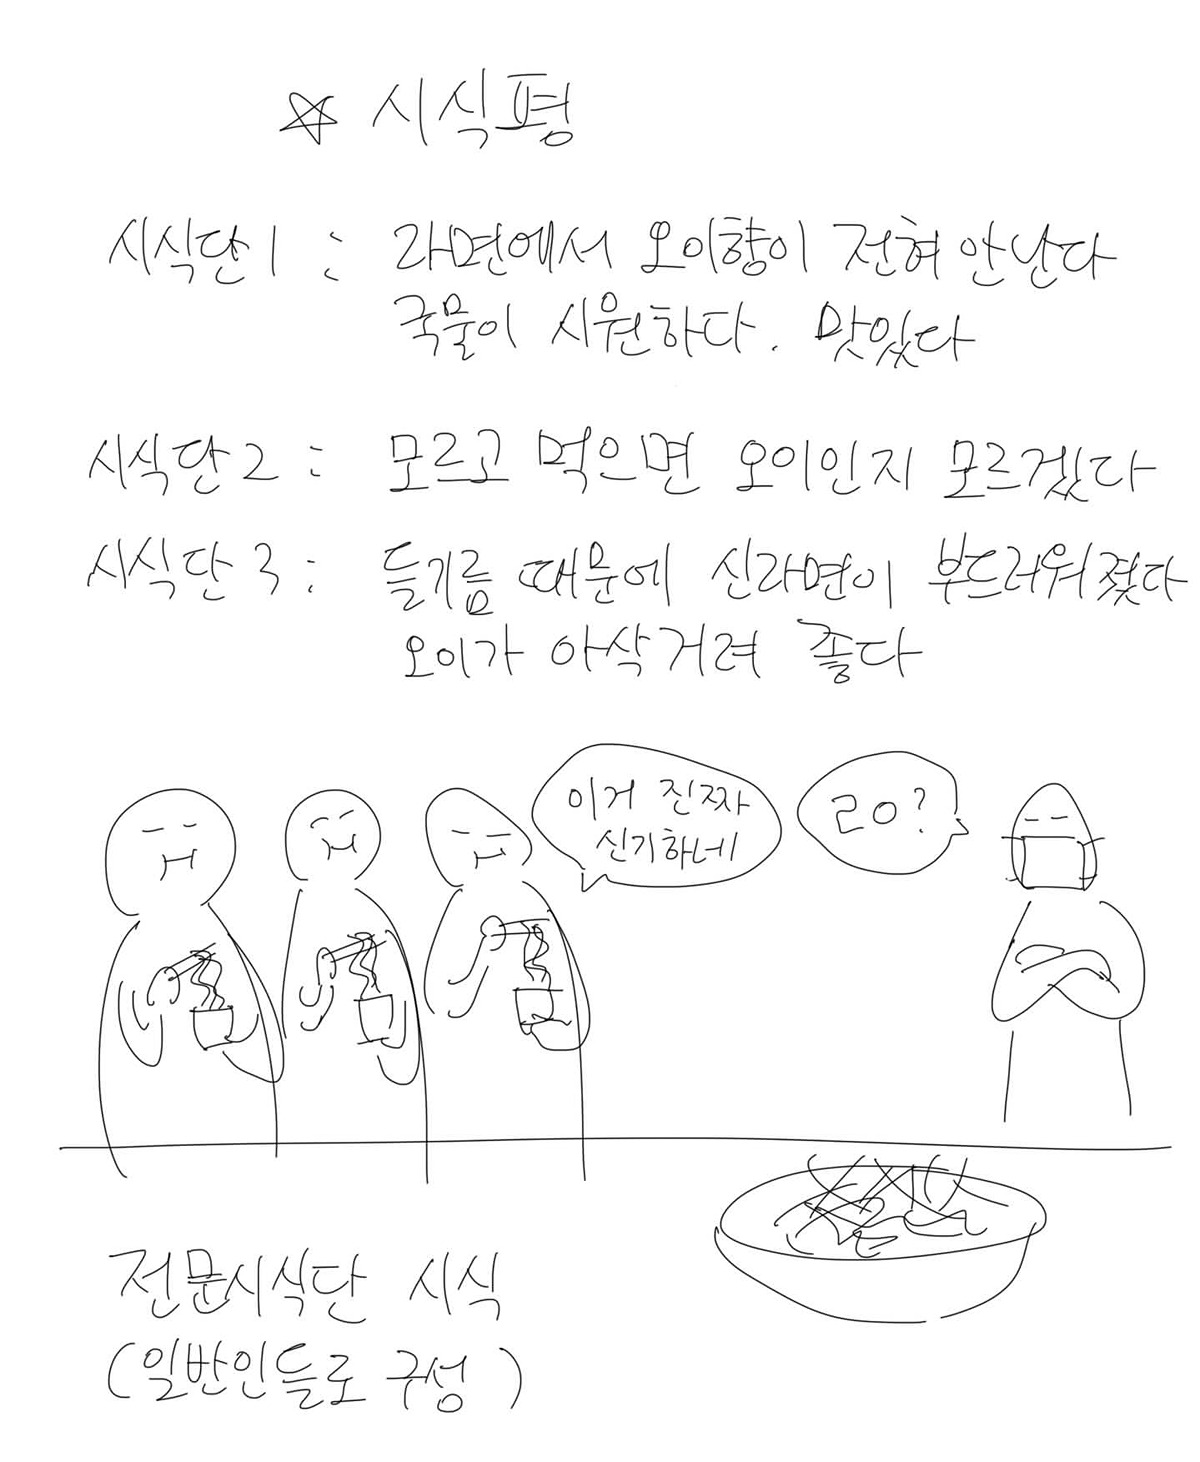 ☆ 시식평
시식단1 : 라면에서 오이향이 전혀 안난다
국물이 시원하다. 맛있다
시식단2 : 모르고 먹으면 오이인지 모르겠다
시식단3 : 들기름 때문에 신라면이 부드러워졌다
오이가 아삭거려 좋다
이거 진짜
신기하네
ㄹㅇ?
전문시식단 시식
(일반인들로 구성)